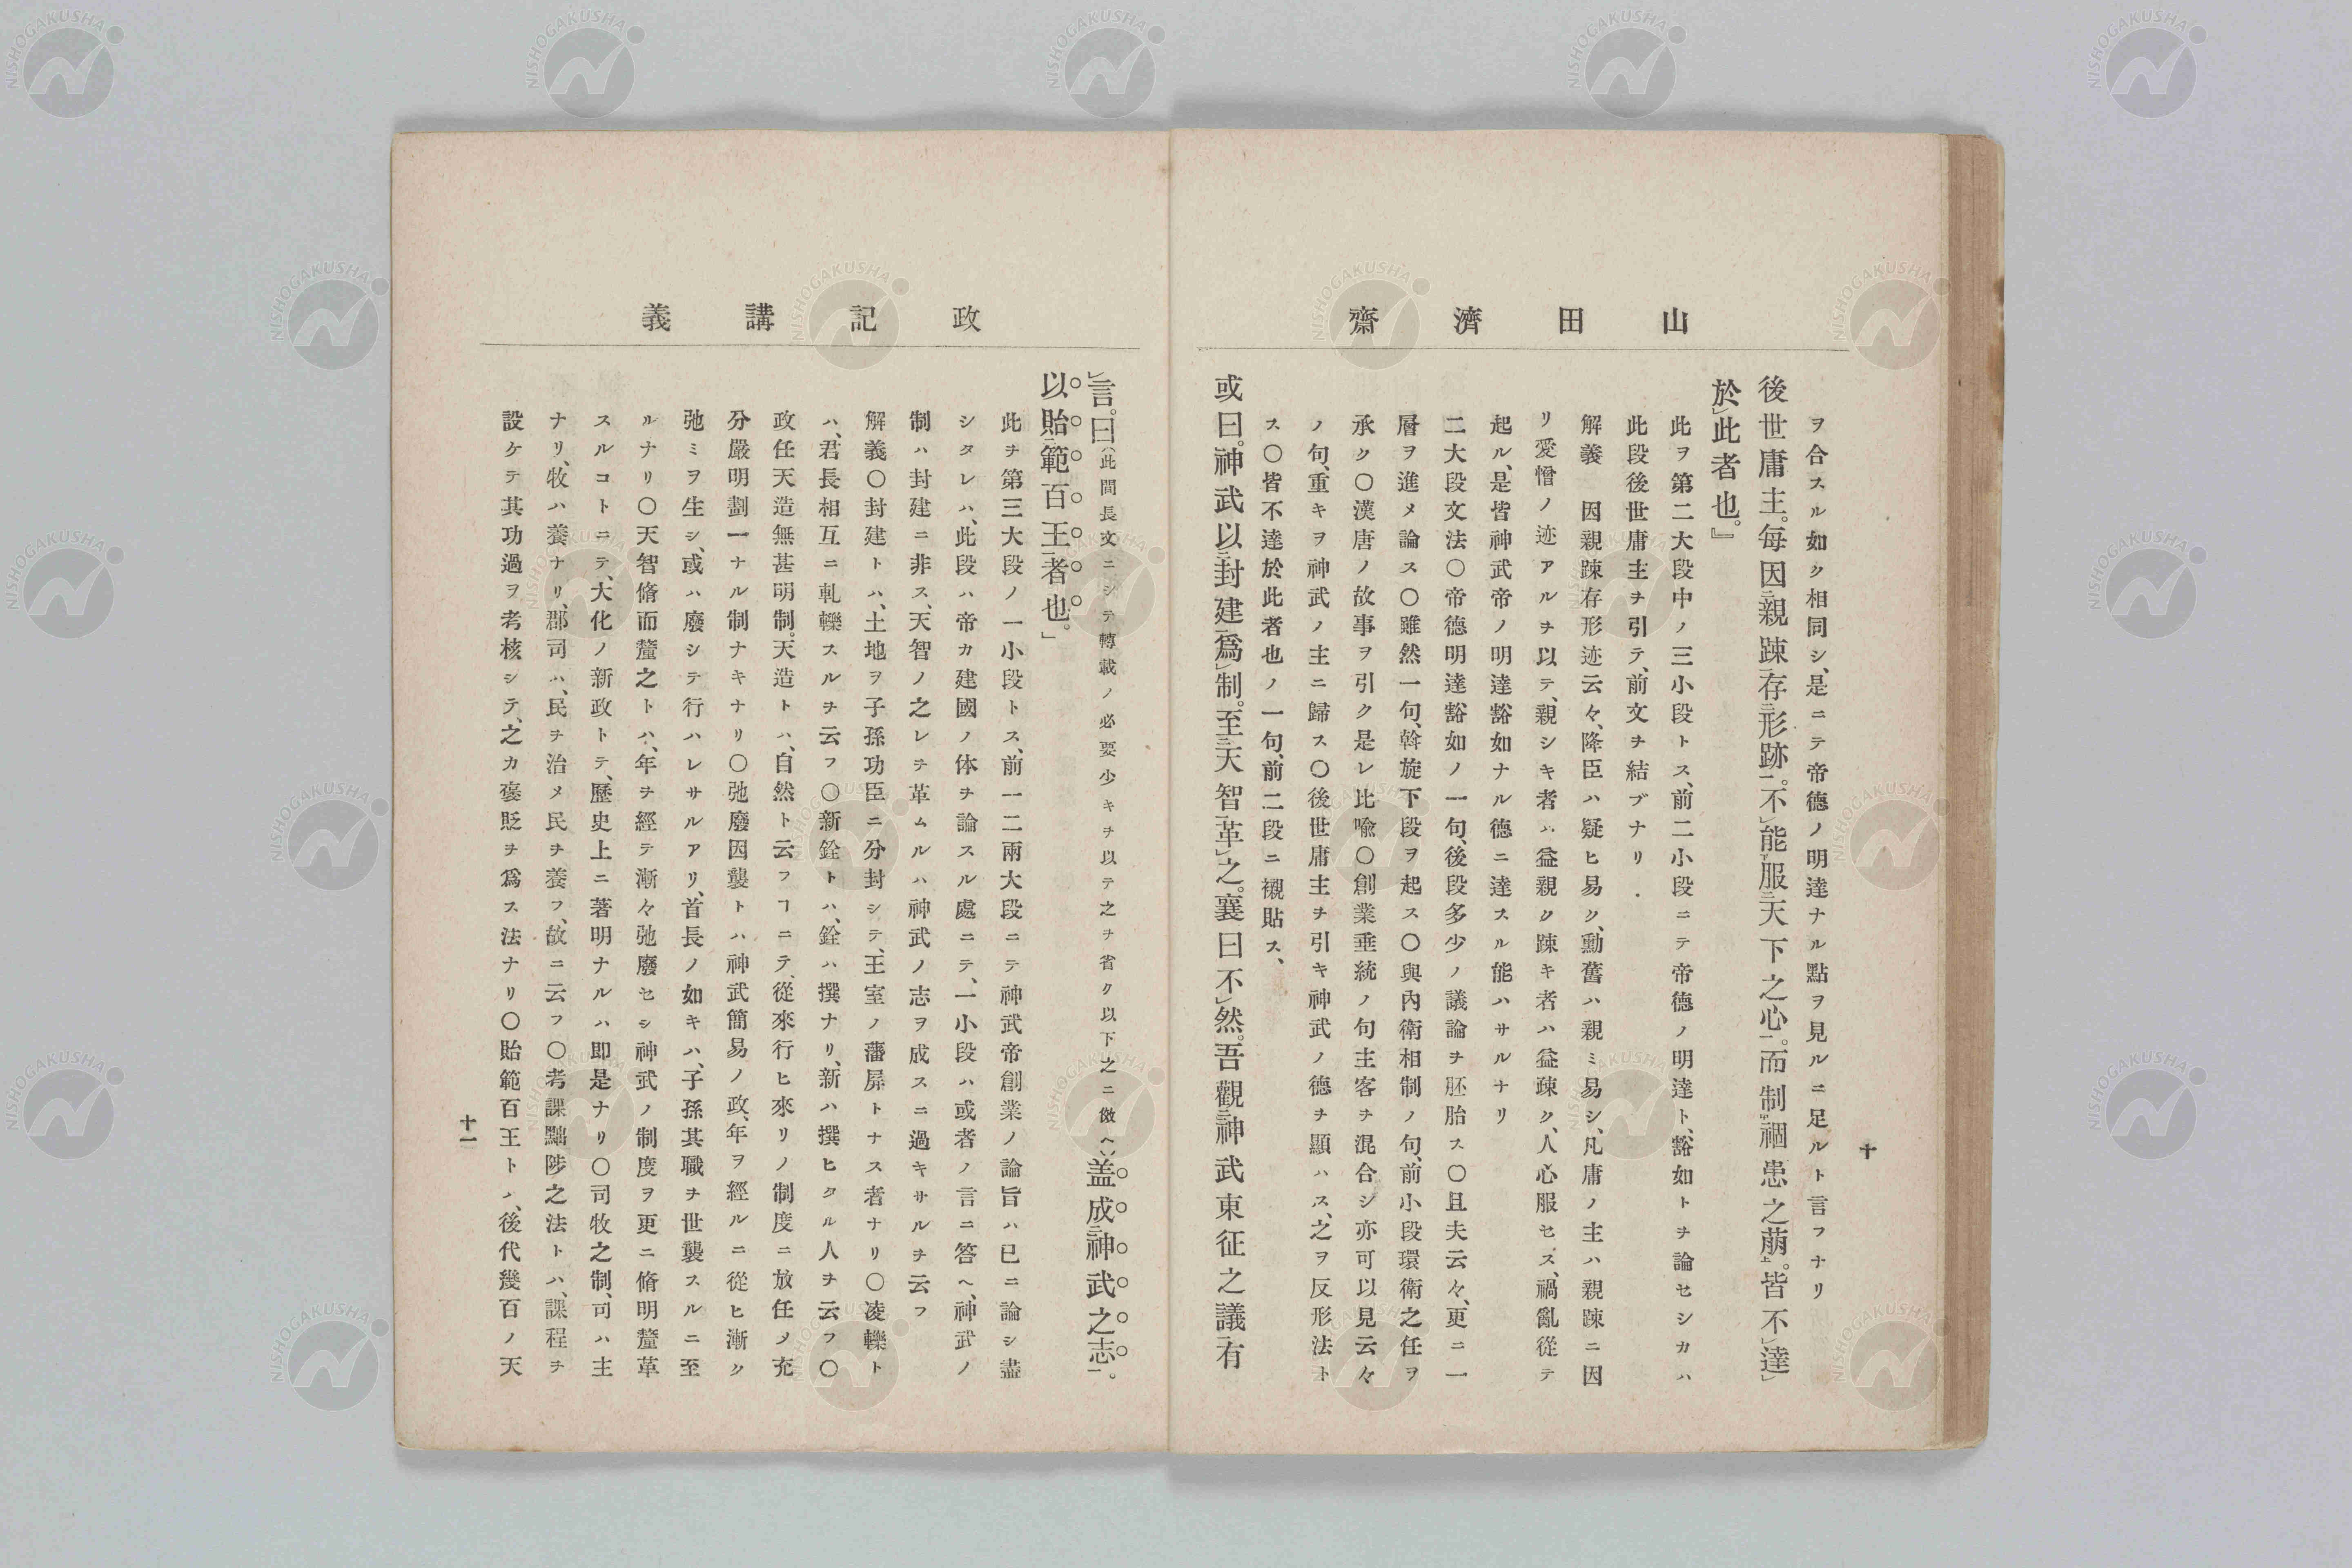 山田濟齋
ヲ合スル如ク相同シ、是ニテ帝德ノ明達ナル點ヲ見ルニ足ルト言フナリ
後世庸主。每因親踈存形跡。不能服天下之心。而制禍患之萠。皆不達
於此者也。』
此ヲ第二大段中ノ三小段トス、前二小段ニテ帝德ノ明達ト、豁如トヲ論セシカハ
此段後世庸主ヲ引テ、前文ヲ結ブナリ.
解義 因親踈存形迹云々、降臣ハ疑ヒ易ク、勳舊ハ親ミ易シ、凡庸ノ主ハ親踈ニ因
リ愛憎ノ迹アルヲ以テ、親シキ者ハ益親ク踈キ者ハ益疎ク、人心服セス、禍亂從テ
起ル、是皆神武帝ノ明達豁如ナル德ニ達スル能ハサルナリ
二大段文法〇帝德明達豁如ノ一句、後段多少ノ議論ヲ胚胎ス〇且夫云々、更ニ一
層ヲ進メ論ス〇雖然一句、斡旋下段ヲ起ス〇與內衛相制ノ句、前小段環衛之任ヲ
承ク〇漢唐ノ故事ヲ引ク是レ比喩〇創業垂統ノ句主客ヲ混合シ亦可以見云々
ノ句、重キヲ神武ノ主ニ歸ス〇後世庸主ヲ引キ神武ノ德ヲ顯ハス、之ヲ反形法ト
ス〇皆不達於此者也ノ一句、前二段ニ襯貼ス、
或曰。神武以封建爲制。至天智革之。襄曰不然。吾觀神武東征之議有
十
政記講義
言。曰(此間長文ニシテ轉載ノ必要少キヲ以テ之ヲ省ク以下之ニ傚へ)盖成神武之志。
以貽範百王者也。」
此ヲ第三大段ノ一小段トス、前一二兩大段ニテ神武帝創業ノ論旨ハ已ニ論シ盡
シタレハ、此段ハ帝カ建國ノ体ヲ論スル處ニテ、一小段ハ或者ノ言ニ答へ、神武ノ
制ハ封建ニ非ス、天智ノ之レヲ革ムルハ神武ノ志ヲ成スニ過キサルヲ云フ
解義〇封建トハ、土地ヲ子孫功臣ニ分封シテ、王室ノ藩屏トナス者ナリ〇凌轢ト
ハ、君長相互ニ軋轢スルヲ云フ〇新銓トハ、銓ハ撰ナリ、新ハ撰ヒタル人ヲ云フ〇
政任天造無甚明制。天造トハ、自然ト云フヿニテ、從來行ヒ來リノ制度ニ放任メ充
分嚴明劃一ナル制ナキナリ〇弛廢因襲トハ神武簡易ノ政、年ヲ經ルニ從ヒ漸ク
弛ミヲ生シ、或ハ廢シテ行ハレサルアリ、首長ノ如キハ、子孫其職ヲ世襲スルニ至
ルナリ〇天智脩而釐之トハ、年ヲ經テ漸々弛廢セシ神武ノ制度ヲ更ニ脩明釐革
スルコトニテ、大化ノ新政トテ、歷史上ニ著明ナルハ即是ナリ〇司牧之制、司ハ主
ナリ、牧ハ養ナリ、郡司ハ、民ヲ治メ民ヲ養フ、故ニ云フ〇考課黜陟之法トハ、課程ヲ
設ケテ其功過ヲ考核シテ、之カ褒貶ヲ爲ス法ナリ〇貽範百王トハ、後代幾百ノ天
十一
NISHOGAKUSHA